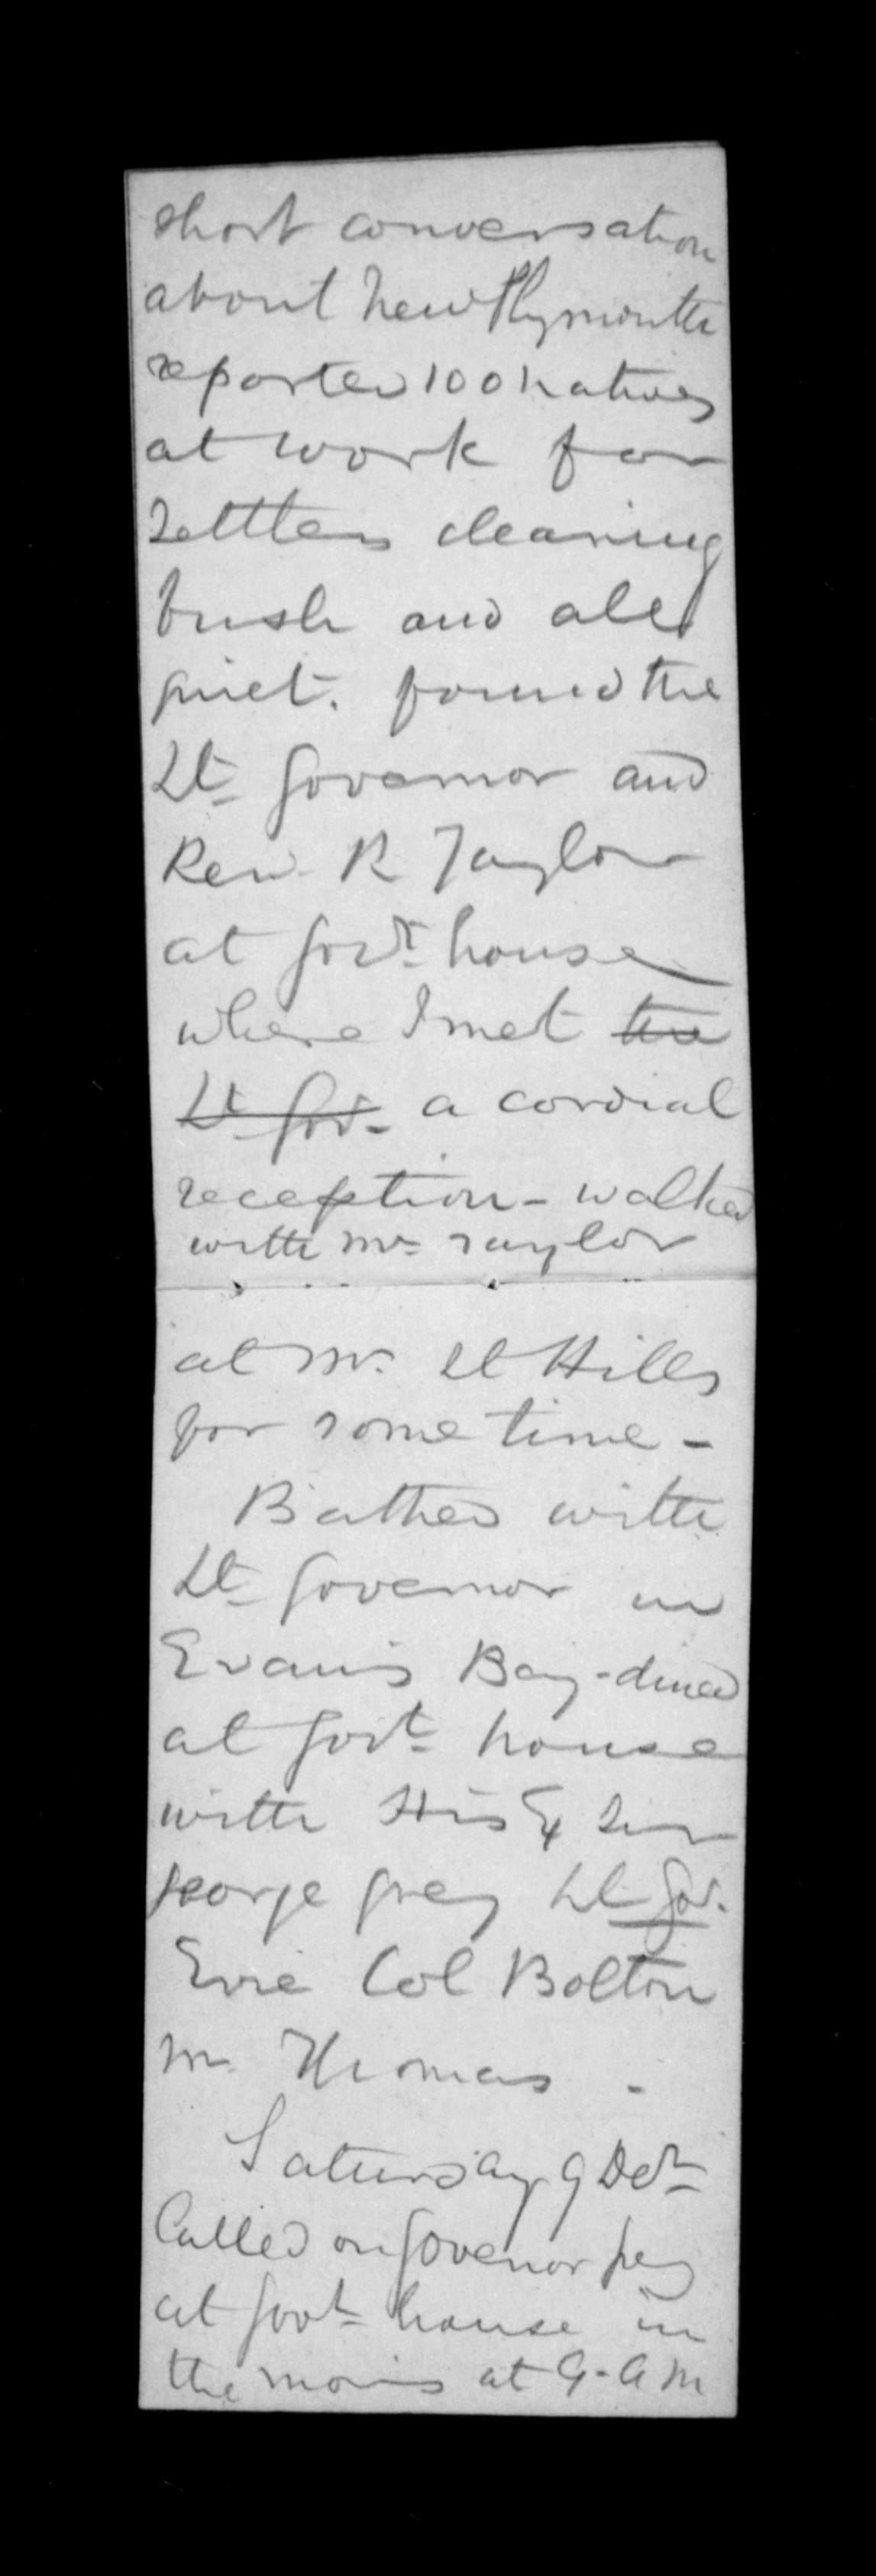 short conversation
about New Plymouth
reported 100 natives
at work for
settlers clearing
bush and all
quiet. found the
Lt Governor and
Rev. R Taylor
at Govt. house
where I met the
Lt Gov. a cordial
reception - walked
with Mr Taylor
at Mr. St Hills
for some time -
Bathed with
Lt Governor in
Evans Bay - dined
at Govt house
with His Ex Sir
George Grey Lt Gov.
Eyre Col Bolton
Mr Thomas -
Saturday 9 Decr
Called on Govenor Grey
at Govt house in
the morng at 9 - AM